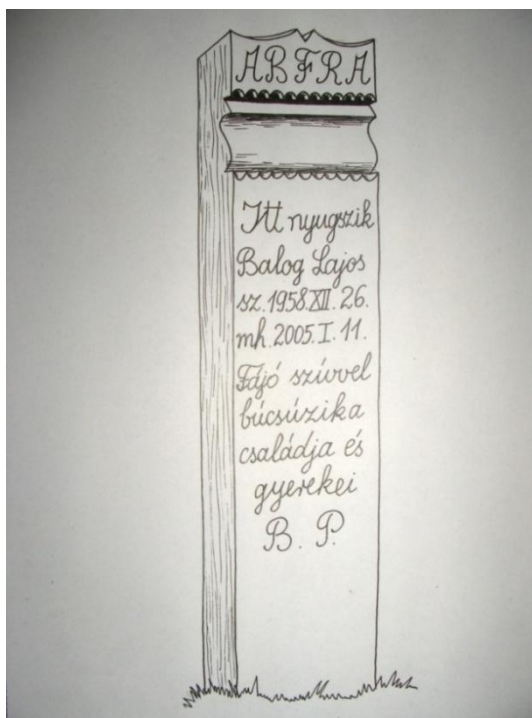 ABFRA
Itt nyugszik
Balog Lajos
sz. 1958. XII. 26.
mh. 2005. I. 11.
Fájó szívvel
búcsúzika
családja és
gyerekei
B. P.